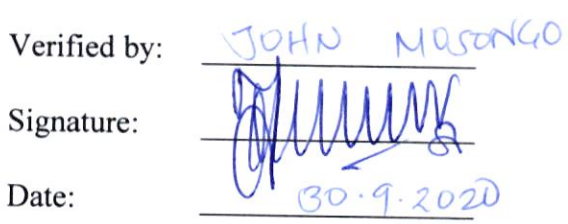 Verified by: JOHN MOSONGO
Signature:
Date: 30.9.2020